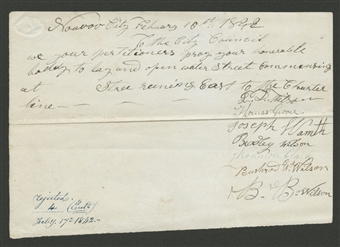 Nauvoo City Febuary 10th 1842
To the City Council
we your petitioners pray your honorable
boddy to lay and open water street commencing
at Street running East to the Charter
line
Joseph Smith
Bradley wilson
Bushrod W. Wilson
B. B. Wilson
rejected
4
Feby. 17th 1842.